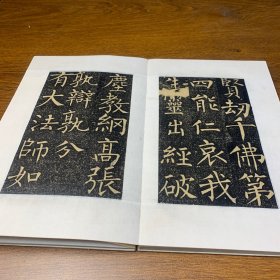 賢劫千佛第
四能仁哀我
生靈出經破
塵教網髙張
孰辯孰分
有大法師如